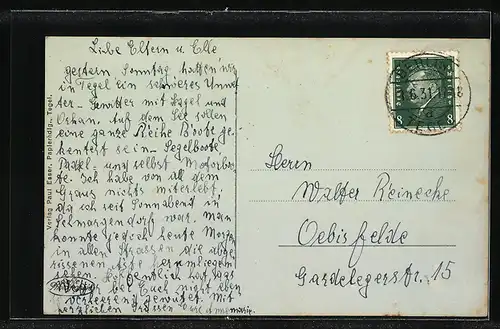 Liebe Eltern u. Elle
gestern Sonntag hatten wir
in Tegel ein schweres Unwe-
ter - Gewitter mit Hagel und
Orkan. Auf dem See sollen
eine ganze Reihe Boote ge-
kentert sein - Segelboote
Paddel- und selbst Motorboo-
te. Ich habe von all dem
Graus nichts miterlebt,
da ich seit Sonnabend in
war. Man
konnte jedoch heute Morgen
in allen Strassen die abge-
rissenen Äste herumliegen
sehen. Hoffentlich hat das
Wetter bei Euch nicht eben
verheerend gewütet. Mit
herzlichen Grüssen
Verlag Paul Esser, Papierhdlg., Tegel.
8 8
Herrn
Walter Reinecke
Oebisfelde
Gardelegerstr. 15